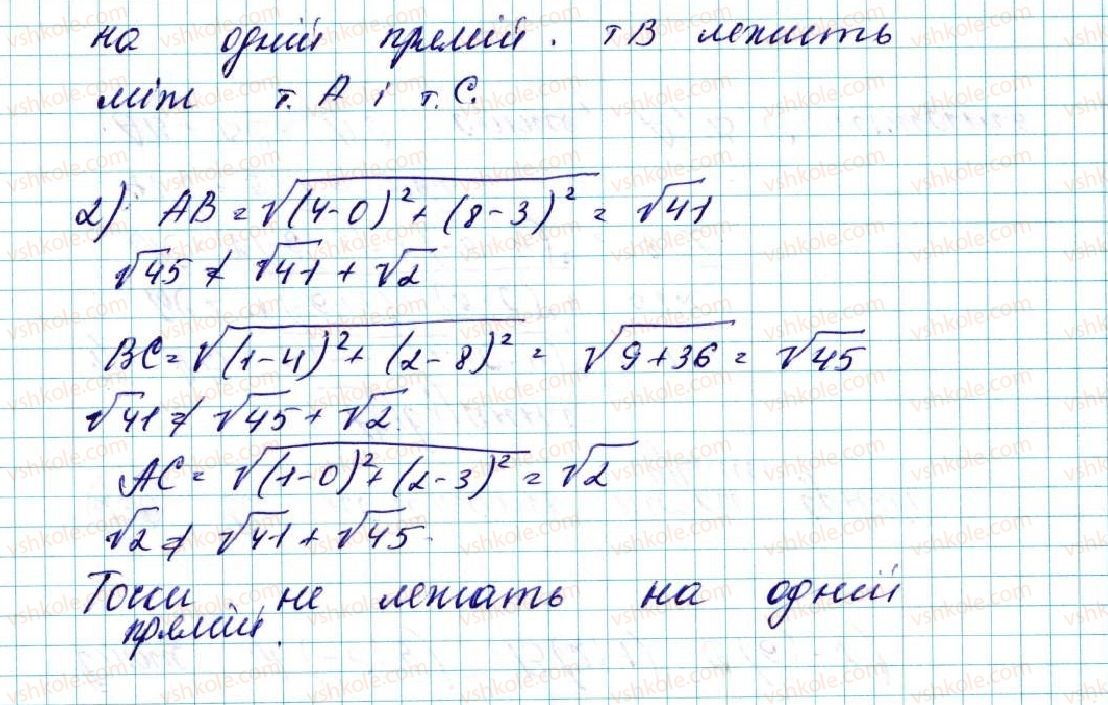 на одній прямій. т В лежить
між т. А і т. С.
2) AB = √((4-0)² + (8-3)²) = √41
√45 ≠ √41 + √2
BC = √((1-4)² + (2-8)²) = √(9+36) = √45
√41 ≠ √45 + √2.
AC = √((1-0)² + (2-3)²) = √2
√2 ≠ √41 + √45.
Точки не лежать на одній
прямій.